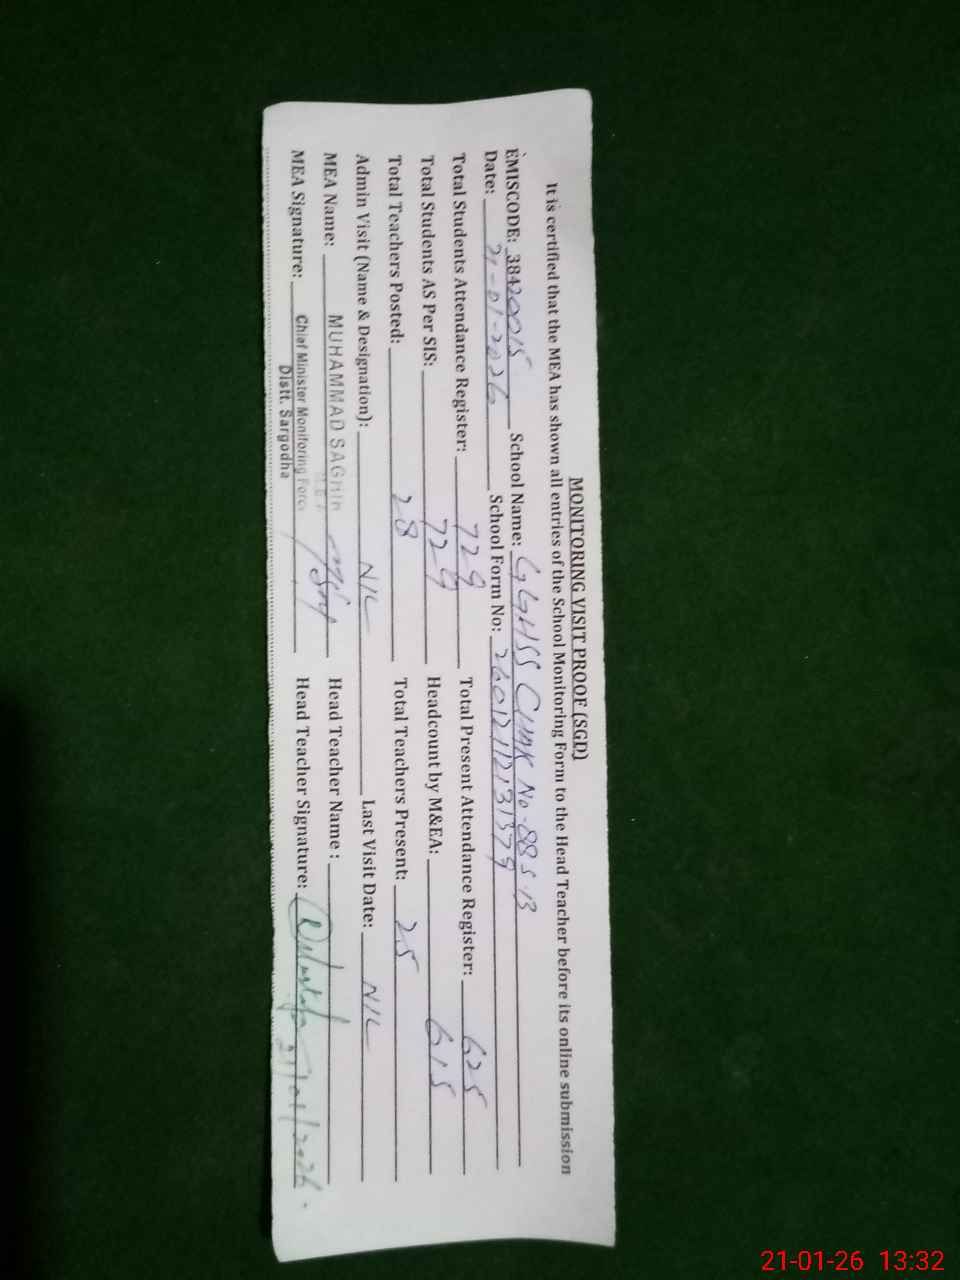 MONITORING VISIT PROOF (SGD)
It is certified that the MEA has shown all entries of the School Monitoring Form to the Head Teacher before its online submission
EMISCODE: 38420015 School Name: GGHSS CHAK No-88 S.B
Date: 21-01-2026 School Form No: 26012112131379
Total Students Attendance Register: 729 Total Present Attendance Register: 625
Total Students AS Per SIS: 729 Headcount by M&EA: 615
Total Teachers Posted: 28 Total Teachers Present: 25
Admin Visit (Name & Designation): NIL Last Visit Date: NIL
MEA Name: MUHAMMAD SAGHIR Head Teacher Name :
MEA Signature: Chief Minister Monitoring Force Head Teacher Signature: 21/01/2026
Distt. Sargodha
21-01-26 13:32